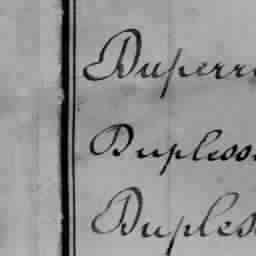 Duperr
Dupless
Duples